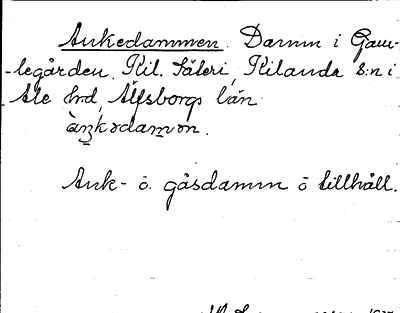 Ankedammen. Damm i Gam-
-legården, Kil. Säteri, Kilanda s:n i
Ale hrd, Älfsborgs län
àŋkədamən.
Ank- o. gåsdamm o tillhåll.